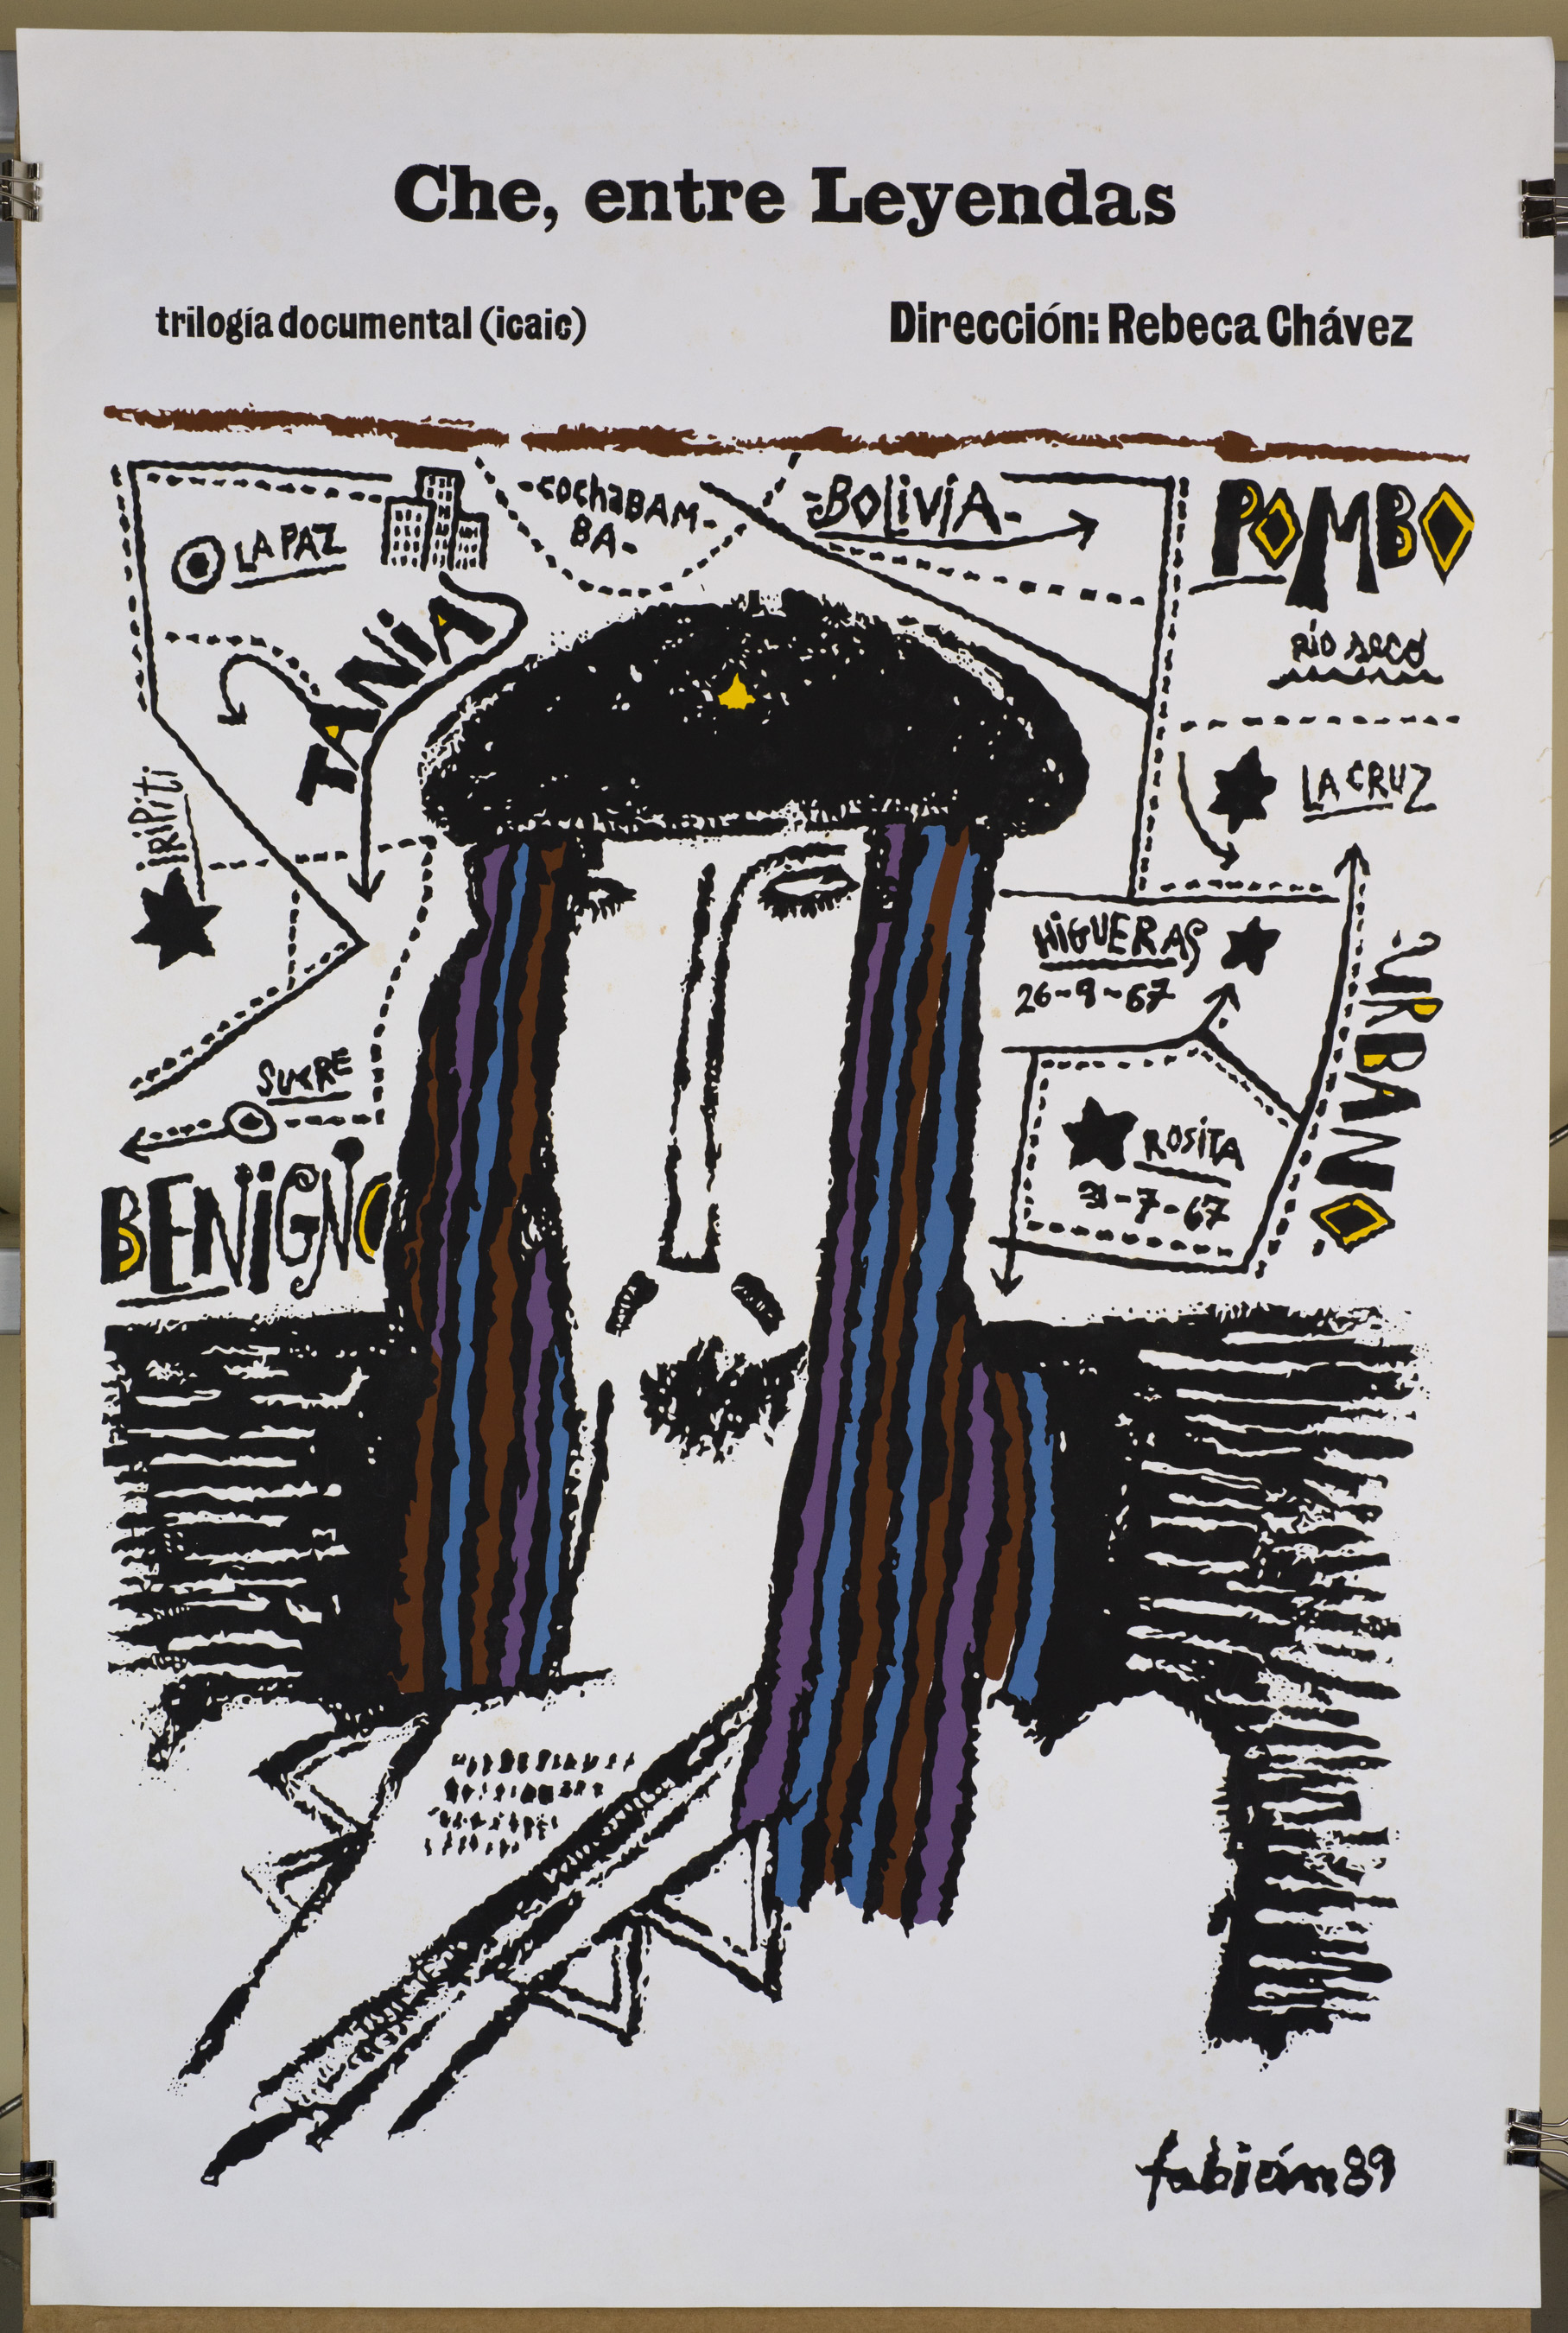 Che, entre Leyendas
trilogía documental (icaic)
Dirección: Rebeca Chávez
LA PAZ
-COCHABAM-
BA-
-BOLIVIA-
POMBO
RÍO SECO
TANIA
LA CRUZ
IRIPITI
HIGUERAS
26-9-67
URBANO
SUCRE
ROSITA
31-7-67
BENIGNO
fabián 89